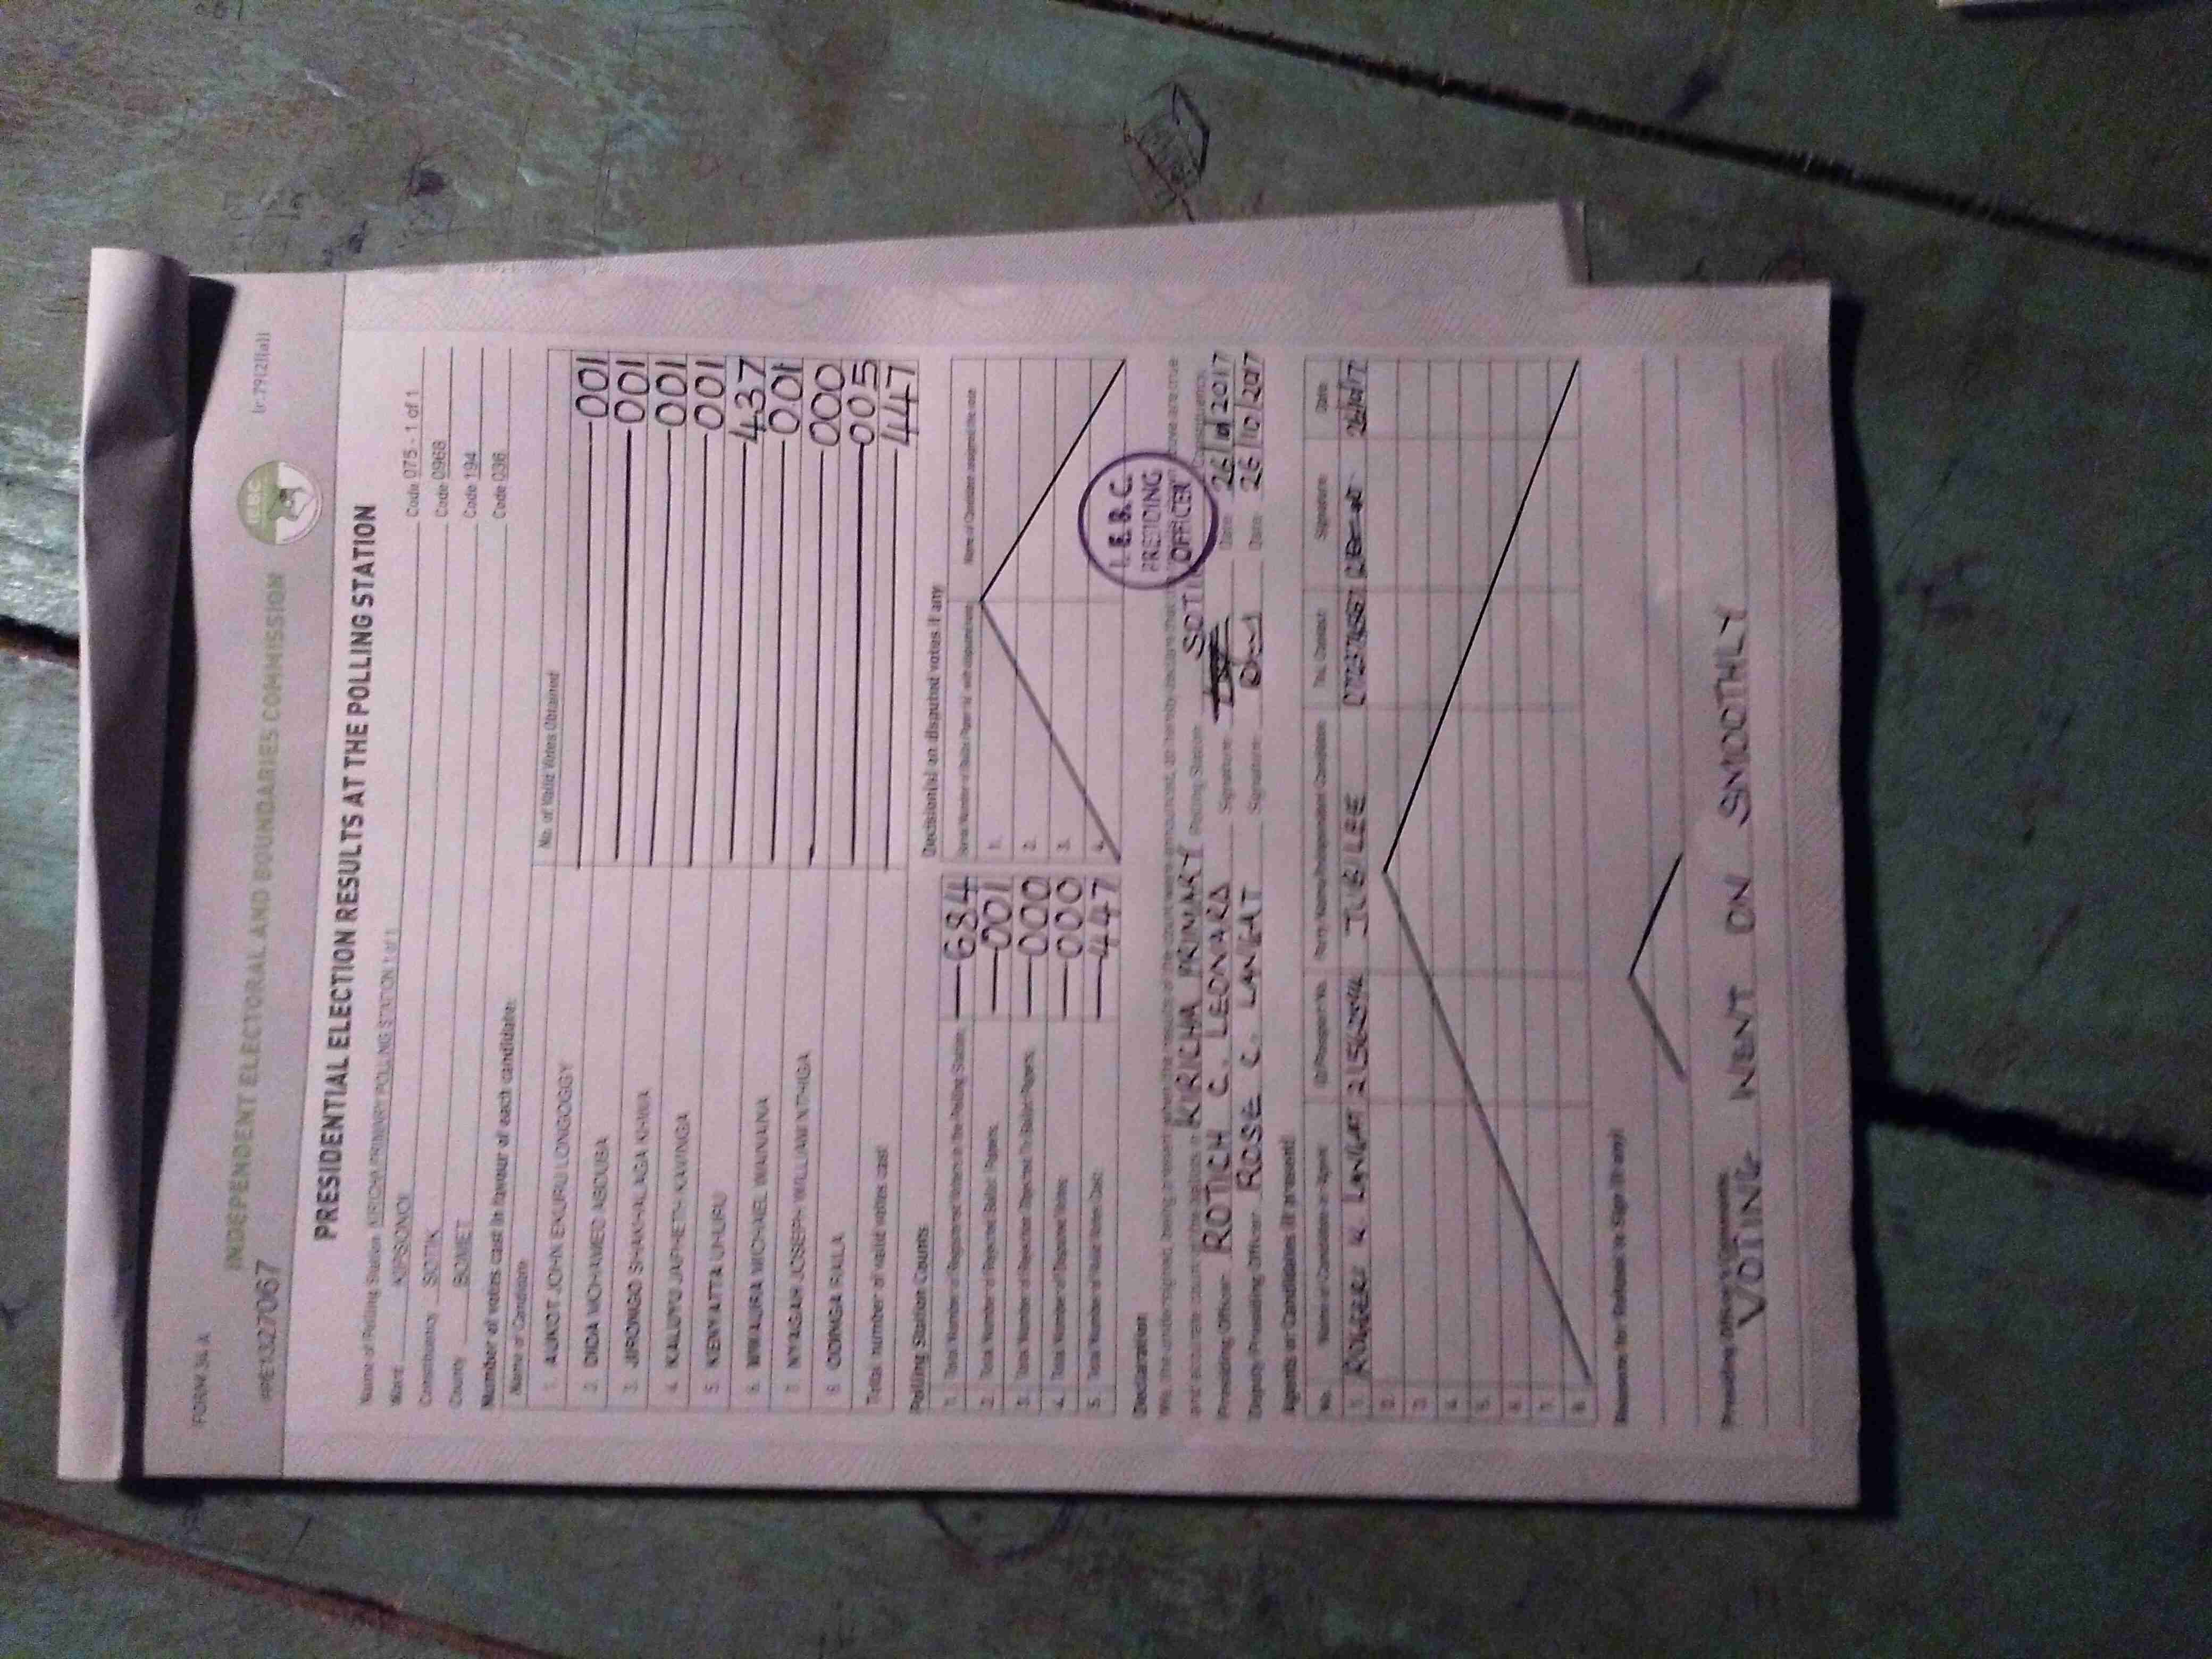 FORM 34 A
(r.79(2)(a))
INDEPENDENT ELECTORAL AND BOUNDARIES COMMISSION
I.E.B.C
PRE1327067
PRESIDENTIAL ELECTION RESULTS AT THE POLLING STATION
Name of Polling Station KIRICHA PRIMARY POLLING STATION 1 of 1 Code 075 - 1 of 1
Ward KIPSONOI Code 0968
Constituency SOTIK Code 194
County BOMET Code 036
Number of votes cast in favour of each candidate:
Name of Candidate No. of Valid Votes Obtained
1. AUKOT JOHN EKURU LONGOGGY 001
2. DIDA MOHAMED ABDUBA 001
3. JIRONGO SHAKHALAGA KHWA 001
4. KALUYU JAPHETH KAVINGA 001
5. KENYATTA UHURU 437
6. MWAURA MICHAEL WAINAINA 001
7. NYAGAH JOSEPH WILLIAM NTHIGA 000
8. ODINGA RAILA 005
Total number of valid votes cast 447
Polling Station Counts
1. Total Number of Registered Voters in the Polling Station 684
2. Total Number of Rejected Ballot Papers 001
3. Total Number of Rejection Objected To Ballot Papers 000
4. Total Number of Disputed Votes 000
5. Total Number of Valid Votes Cast 447
Decision(s) on disputed votes if any
1.
2.
3.
4.
I.E.B.C.
PREICING
OFFICER
Declaration
KIRICHA PRIMARY Polling Station
Presiding Officer ROTICH C. LEONARD Signature Date 26/10/2017
Deputy Presiding Officer ROSE C. LANGAT Signature Date 26/10/2017
Agents or Candidates (if present)
No. Name of Candidate or Agent ID/Passport No. Party Name/Independent Candidate Tel. Contact Signature Date
1. LANGAT JUBILEE
2.
3.
4.
5.
6.
7.
8.
Reasons for Refusal to Sign (if any)
Presiding Officer's Comments
VOTING WENT ON SMOOTHLY